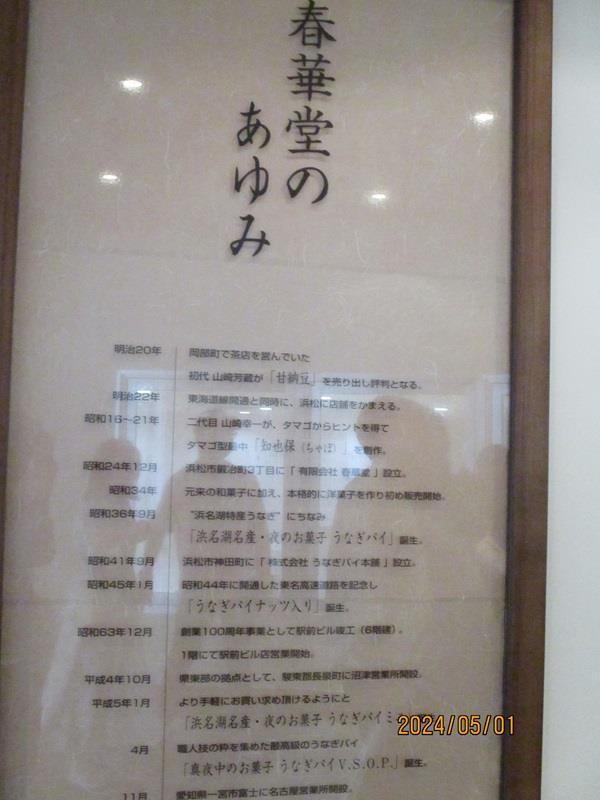 春華堂の
あゆみ
明治20年 岡部町で茶店を営んでいた
初代 山崎芳蔵が「甘納豆」を売り出し評判となる。
明治22年 東海道線開通と同時に、浜松に店舗をかまえる。
昭和16〜21年 二代目 山崎幸一が、タマゴからヒントを得て
タマゴ型最中「知也保(ちゃぼ)」を創作。
昭和24年12月 浜松市鍛冶町3丁目に「有限会社 春華堂」設立。
昭和34年 元来の和菓子に加え、本格的に洋菓子を作り初め販売開始。
昭和36年9月 "浜名湖特産うなぎ"にちなみ
「浜名湖名産・夜のお菓子 うなぎパイ」誕生。
昭和41年9月 浜松市神田町に「株式会社 うなぎパイ本舗」設立。
昭和45年1月 昭和44年に開通した東名高速道路を記念し
「うなぎパイナッツ入り」誕生。
昭和63年12月 創業100周年事業として駅前ビル竣工(6階建)。
1階にて駅前ビル店営業開始。
平成4年10月 県東部の拠点として、駿東郡長泉町に沼津営業所開設。
平成5年1月 より手軽にお買い求め頂けるようにと
「浜名湖名産・夜のお菓子 うなぎパイミ
4月 職人技の粋を集めた最高級のうなぎパイ
「真夜中のお菓子 うなぎパイV.S.O.P.」誕生。
11月 愛知県一宮市富士に名古屋営業所開設。
2024/05/01